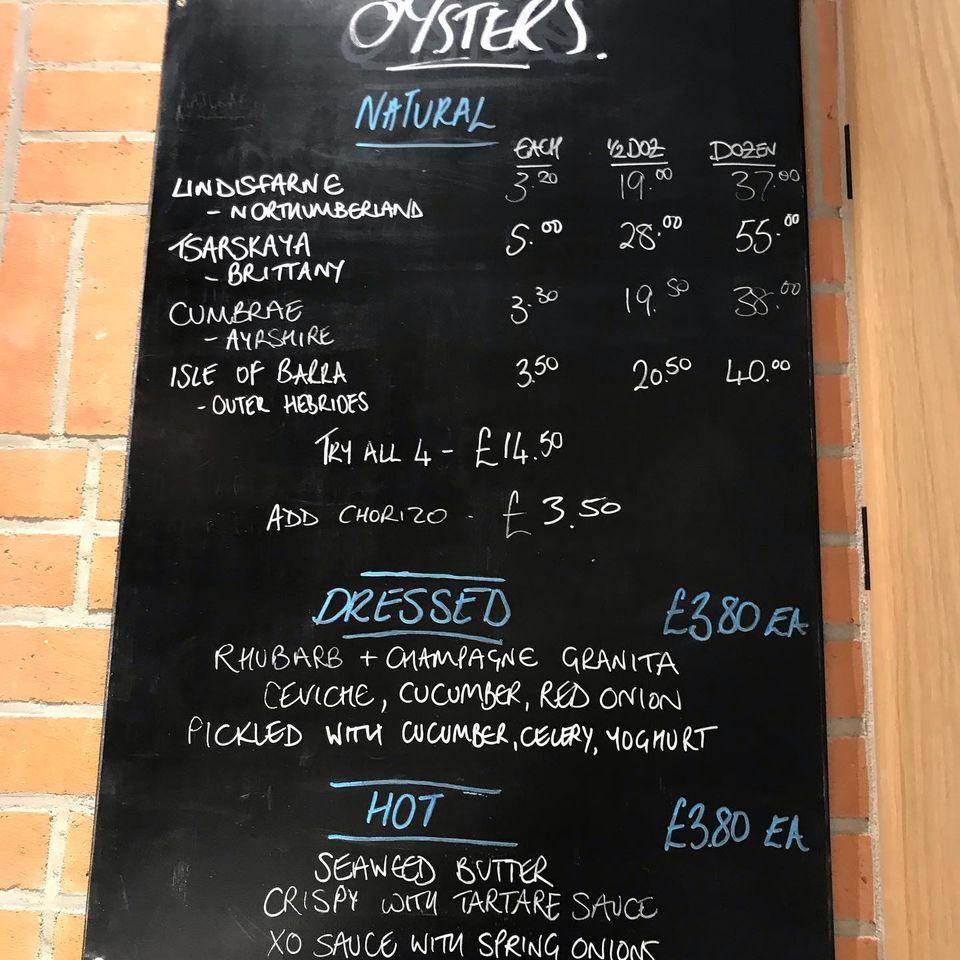 OYSTERS.
NATURAL
EACH 1/2 DOZ DOZEN
LINDISFARNE 3.20 19.00 37.00
- NORTHUMBERLAND
TSARSKAYA 5.00 28.00 55.00
- BRITTANY
CUMBRAE 3.30 19.50 38.00
- AYRSHIRE
ISLE OF BARRA 3.50 20.50 40.00
- OUTER HEBRIDES
TRY ALL 4 - £14.50
ADD CHORIZO - £3.50
DRESSED £3.80 EA
RHUBARB + CHAMPAGNE GRANITA
CEVICHE, CUCUMBER, RED ONION
PICKLED WITH CUCUMBER, CELERY, YOGHURT
HOT £3.80 EA
SEAWEED BUTTER
CRISPY WITH TARTARE SAUCE
XO SAUCE WITH SPRING ONIONS